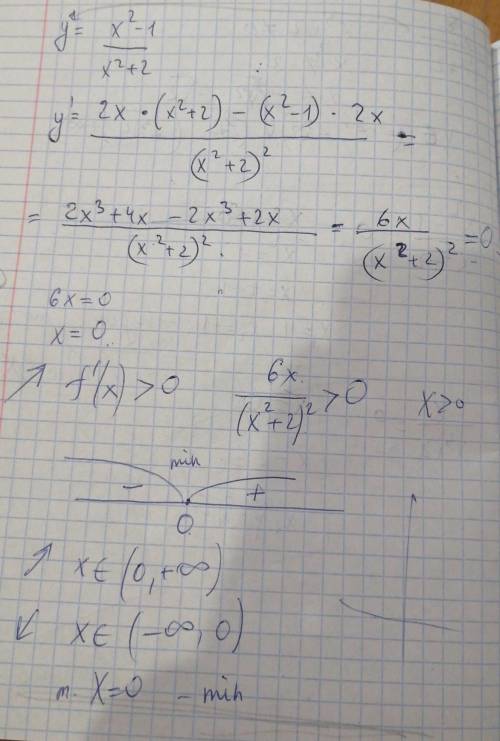 y = (x²-1)/(x²+2)
y' = (2x · (x²+2) - (x²-1) · 2x)/(x²+2)² =
= (2x³+4x - 2x³+2x)/(x²+2)² = 6x/(x²+2)² = 0
6x=0
x=0.
↗ f'(x) > 0 6x/(x²+2)² > 0 x>0
min
- +
0
↗ x∈(0,+∞)
↙ x∈(-∞,0)
т. x=0 - min